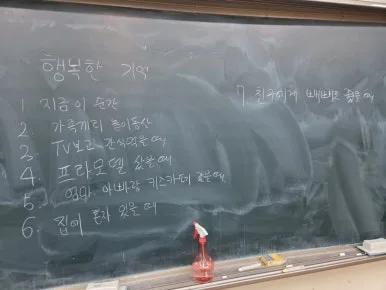 행복한 기억
1. 지금 이 순간
2. 가족끼리 놀이동산
3. TV보고 간식먹을 때
4. 프라모델 샀을 때
5. 엄마 아빠랑 키즈카페 갔을 때
6. 집에 혼자 있을 때
7. 친구에게 빼빼로 줬을 때